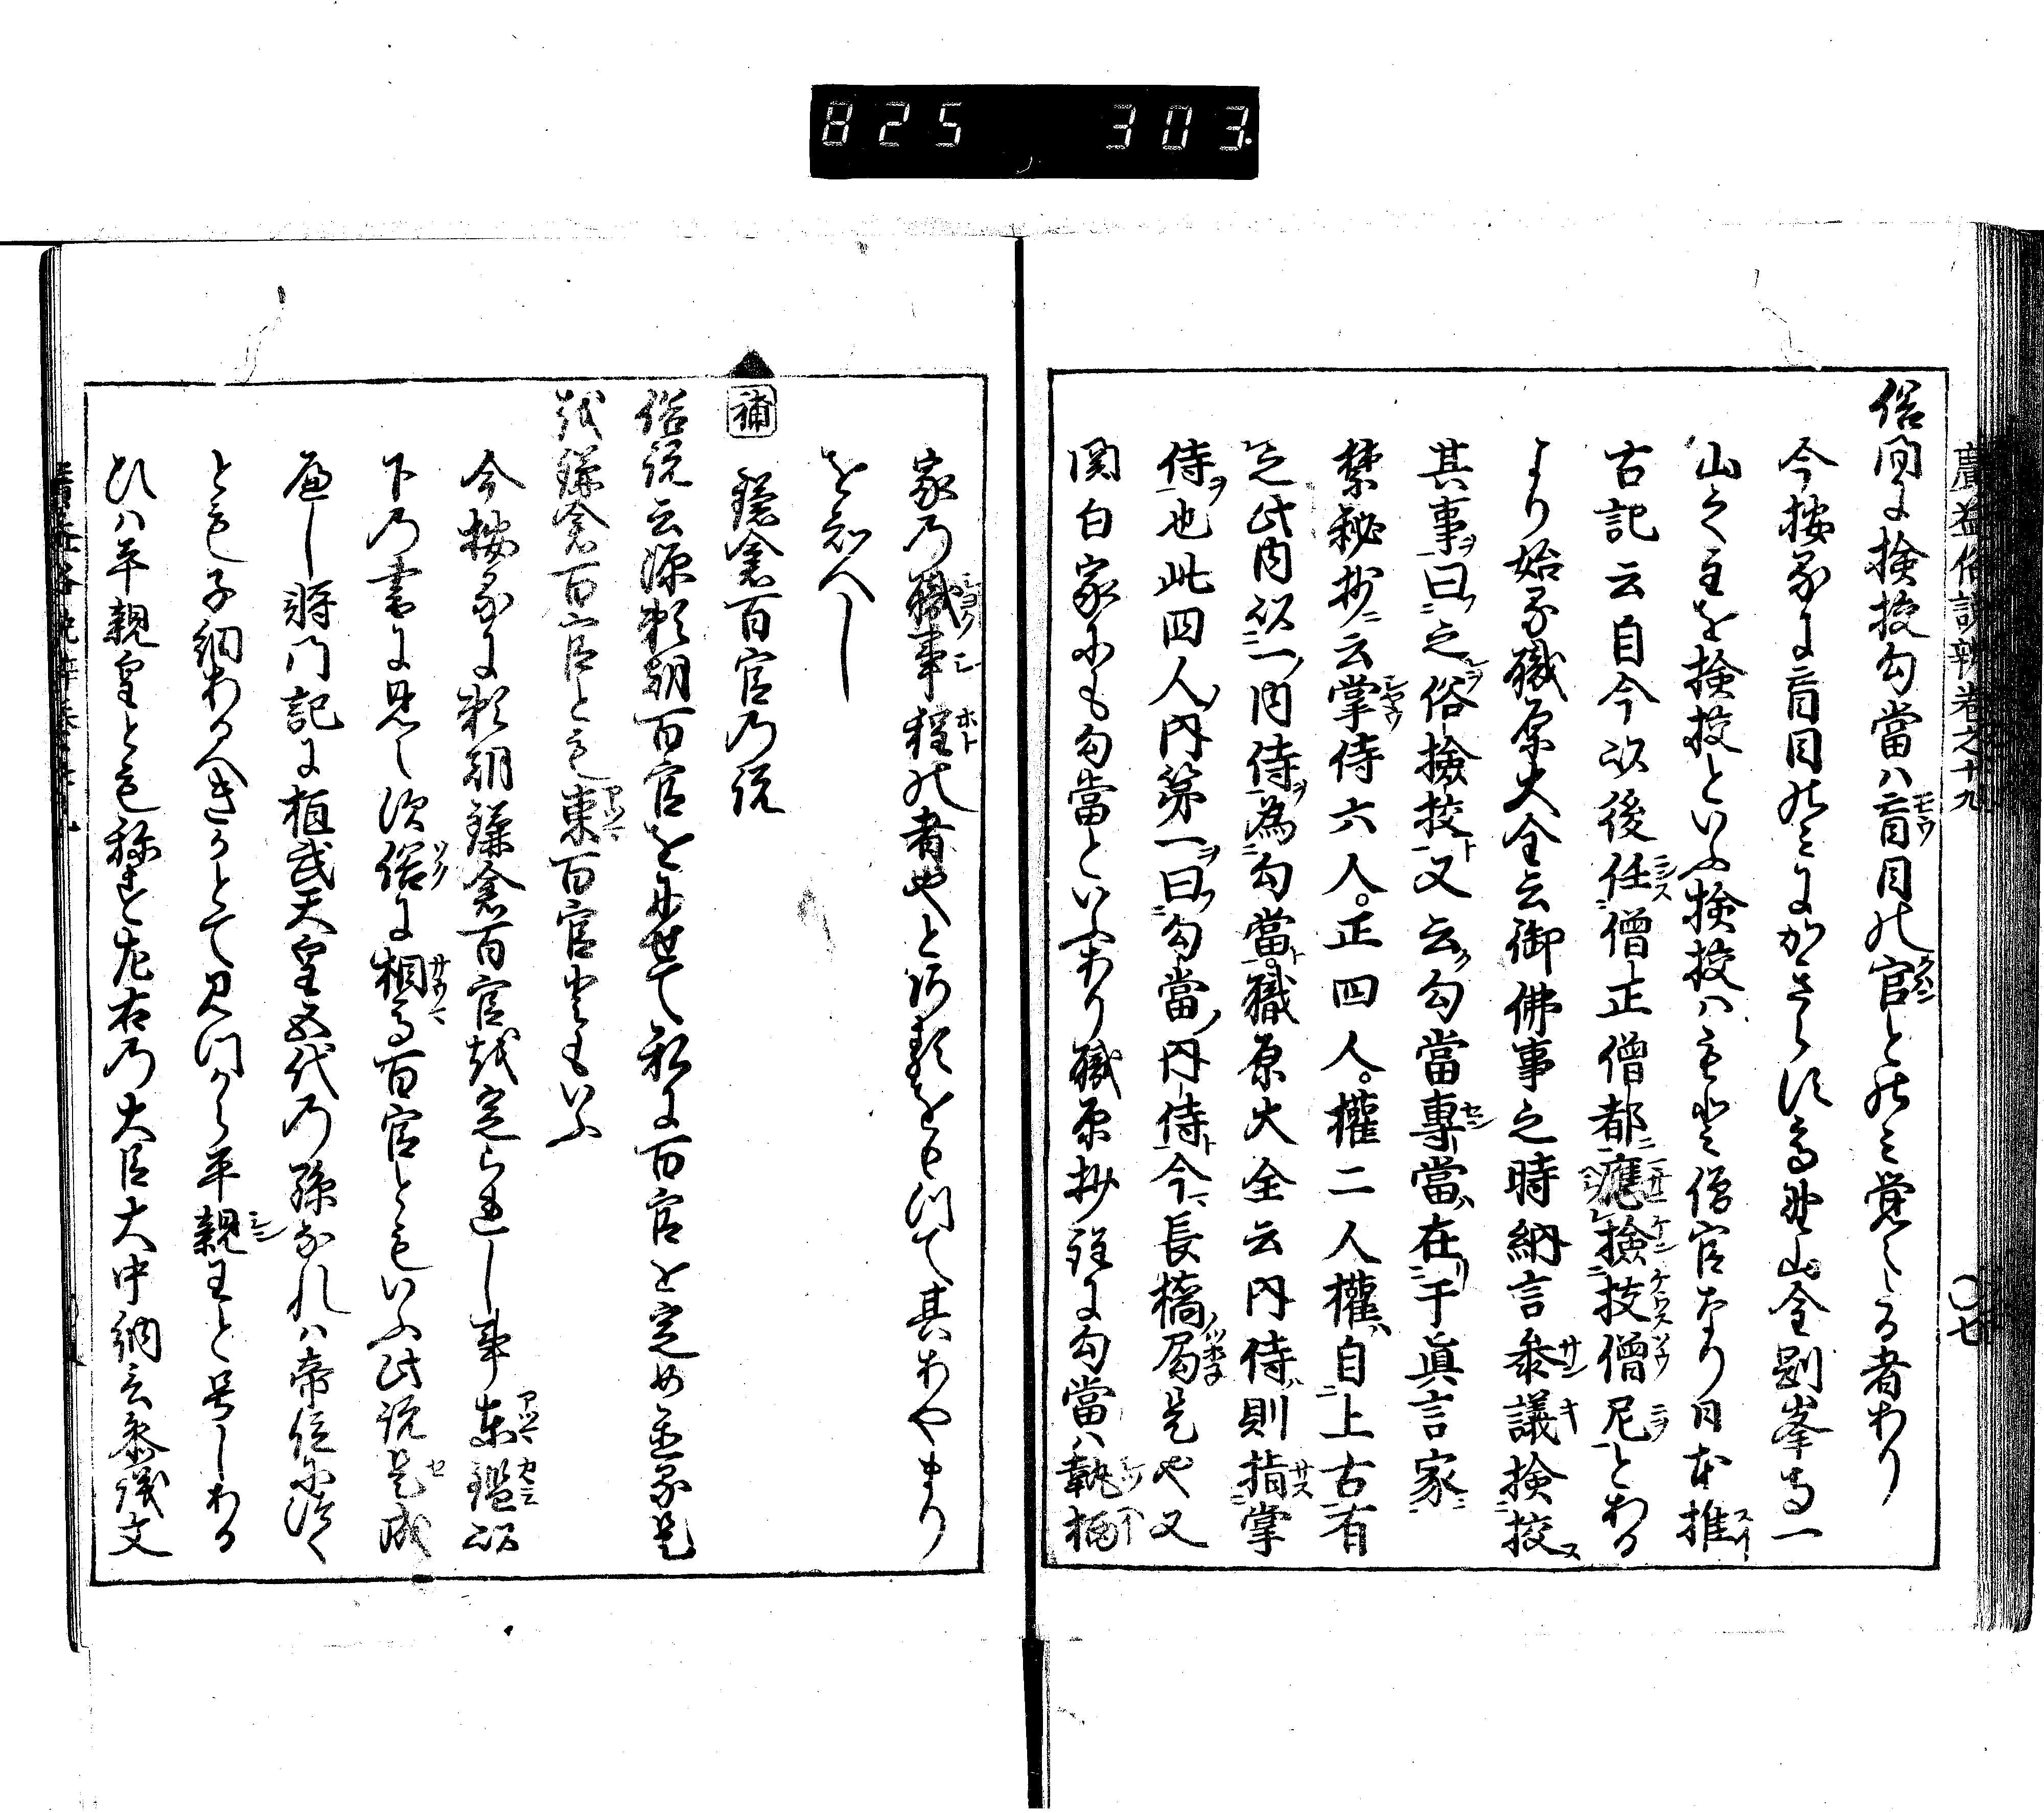 825 303
廣益俗説辨卷之十九
〇七
俗間に検校勾當ハ盲目の官とのミ覚へたる者あり
今按るに盲目のミにかきらす高野山金剛峯寺一
山之主を検校といふ検校ハもと僧官なり日本推
古記云自今以後任僧正僧都應検技僧尼とある
より始る職原大全云御佛事之時納言参議検校
其事曰之俗検校又云勾當專當在于眞言家
禁秘抄云掌侍六人。正四人。權二人權自上古有
之此内以一内侍為勾當職原大全云内侍則指掌
侍也此四人内第一曰勾當内侍今長橋局是也又
関白家にも勾當といふあり職原抄註に勾當ハ執柄
家乃職事程の者也と此類をもつて其あやまり
を知へし
補 鎌倉百官乃説
俗説云源頼朝百官を似せて私に百官を定め玉ふ是
を鎌倉百官とも東百官ともいふ
今按るに頼朝鎌倉百官を定られし事東鑑以
下乃書に見へす俗に相馬百官ともいふ此説是成
へし將門記に桓武天皇五代乃孫なれハ帝位に洽く
とも子細あるへきかとてみつから平親王と号しある
ひハ平親皇とも称すと左右乃大臣大中納言参議文